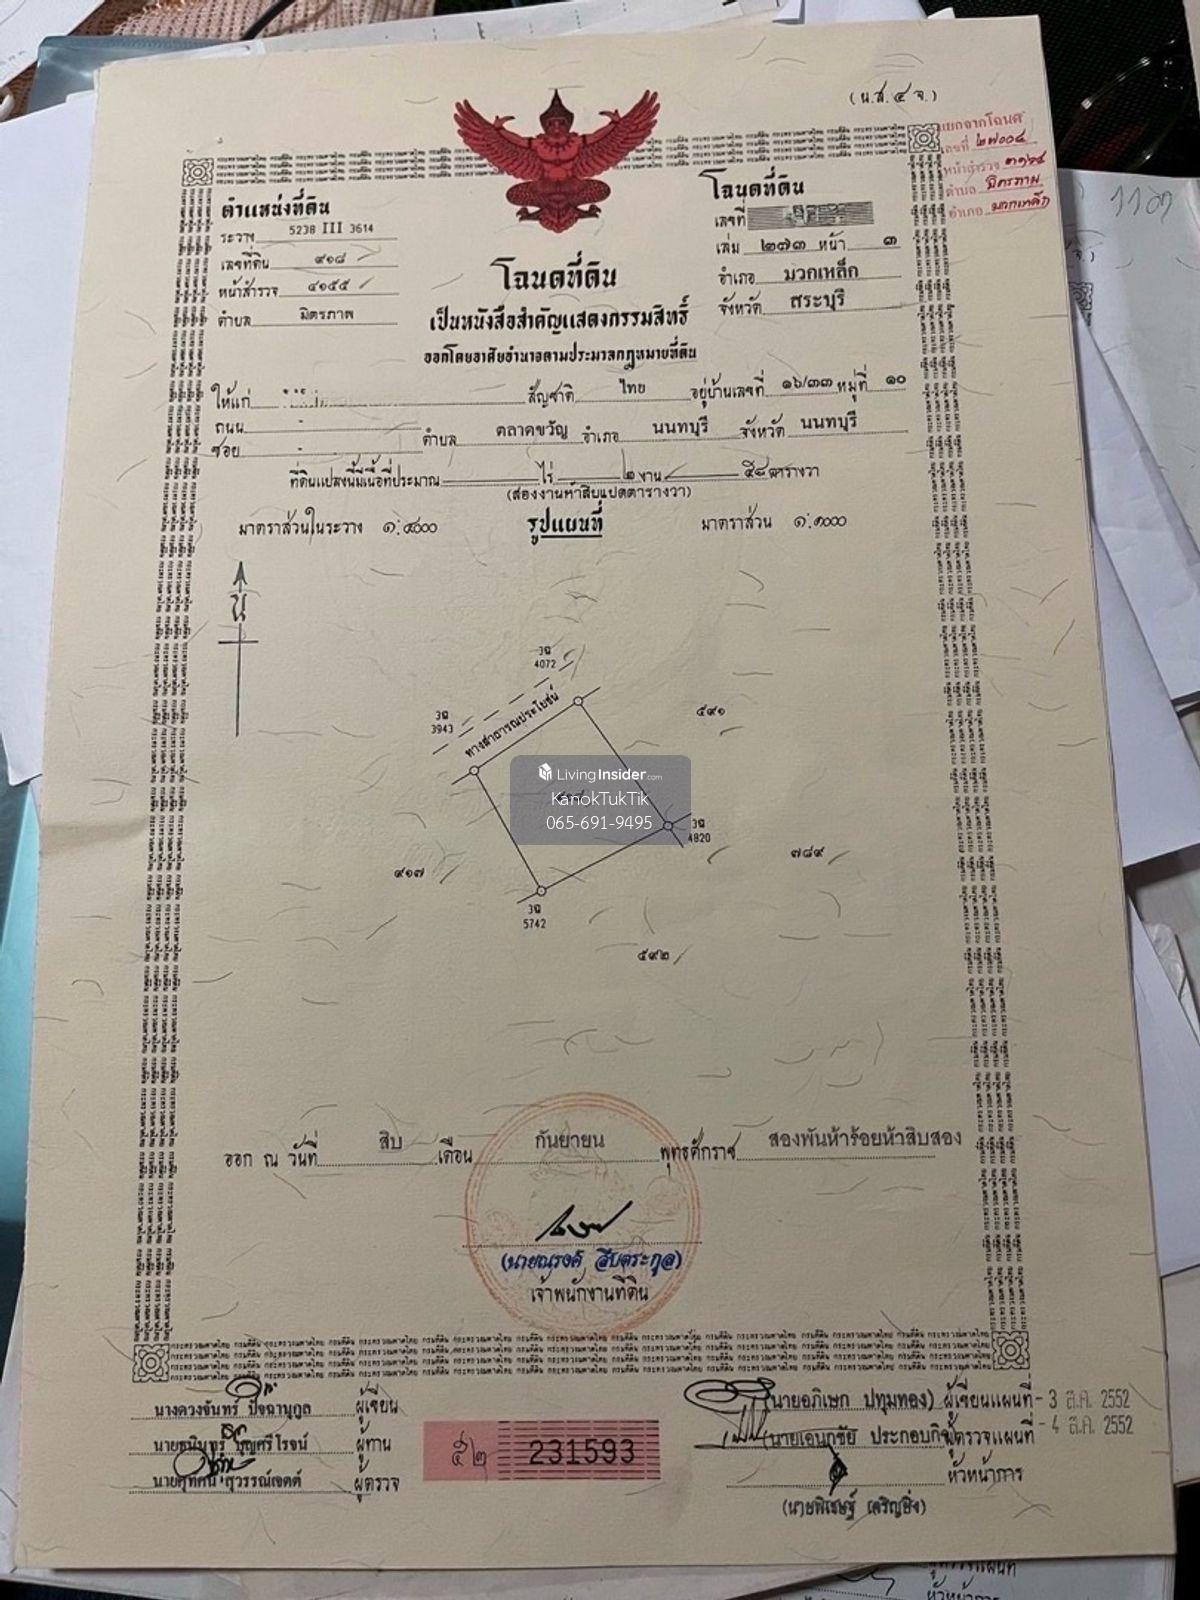 (น.ส.๔ จ.)
แยกจากโฉนด
เลขที่ ๒๗๐๐๔
หน้าสำรวจ
ตำบล มิตรภาพ
อำเภอ มวกเหล็ก
ตำแหน่งที่ดิน
ระวาง 5238 III 3614
เลขที่ดิน ๙๑๘
หน้าสำรวจ ๔๑๕๕
ตำบล มิตรภาพ
โฉนดที่ดิน
เลขที่
เล่ม ๒๗๓ หน้า ๓
อำเภอ มวกเหล็ก
จังหวัด สระบุรี
โฉนดที่ดิน
เป็นหนังสือสำคัญแสดงกรรมสิทธิ์
ออกโดยอาศัยอำนาจตามประมวลกฎหมายที่ดิน
ให้แก่ สัญชาติ ไทย อยู่บ้านเลขที่ ๑๖/๓๓ หมู่ที่ ๑๐
ถนน -
ซอย - ตำบล ตลาดขวัญ อำเภอ นนทบุรี จังหวัด นนทบุรี
ที่ดินแปลงนี้มีเนื้อที่ประมาณ ไร่ ๒ งาน ๕๘ ตารางวา
(สองงานห้าสิบแปดตารางวา)
มาตราส่วนในระวาง ๑:๔๐๐๐ รูปแผนที่ มาตราส่วน ๑:๑๐๐๐
น
3ฉ
4072
3ฉ
3943
ทางสาธารณประโยชน์
๕๙๑
LivingInsider.com
KanokTukTik
065-691-9495
3ฉ
4820
๙๑๗
๗๘๙
3ฉ
5742
๕๙๒
ออก ณ วันที่ สิบ เดือน กันยายน พุทธศักราช สองพันห้าร้อยห้าสิบสอง
(นายณรงค์ สืบตระกูล)
เจ้าพนักงานที่ดิน
นางดวงจันทร์ ปัจฉานุกูล ผู้เขียน
บุญศรีโรจน์ ผู้ทาน
สุวรรณ์เจตต์ ผู้ตรวจ
๕๒ 231593
(นายอภิเษก ปทุมทอง) ผู้เขียนแผนที่ - 3 ส.ค. 2552
ประกอบกิจ ผู้ตรวจแผนที่ - 4 ส.ค. 2552
หัวหน้าการ
(นายพิเชษฐ์ เจริญยิ่ง)